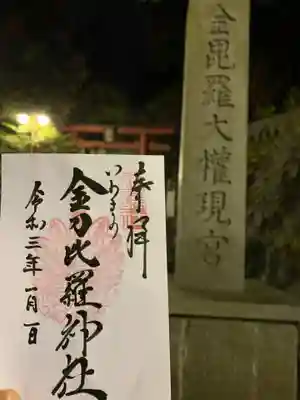 金毘羅大権現宮
奉拝
いわきの
金刀比羅神社
令和三年一月一日